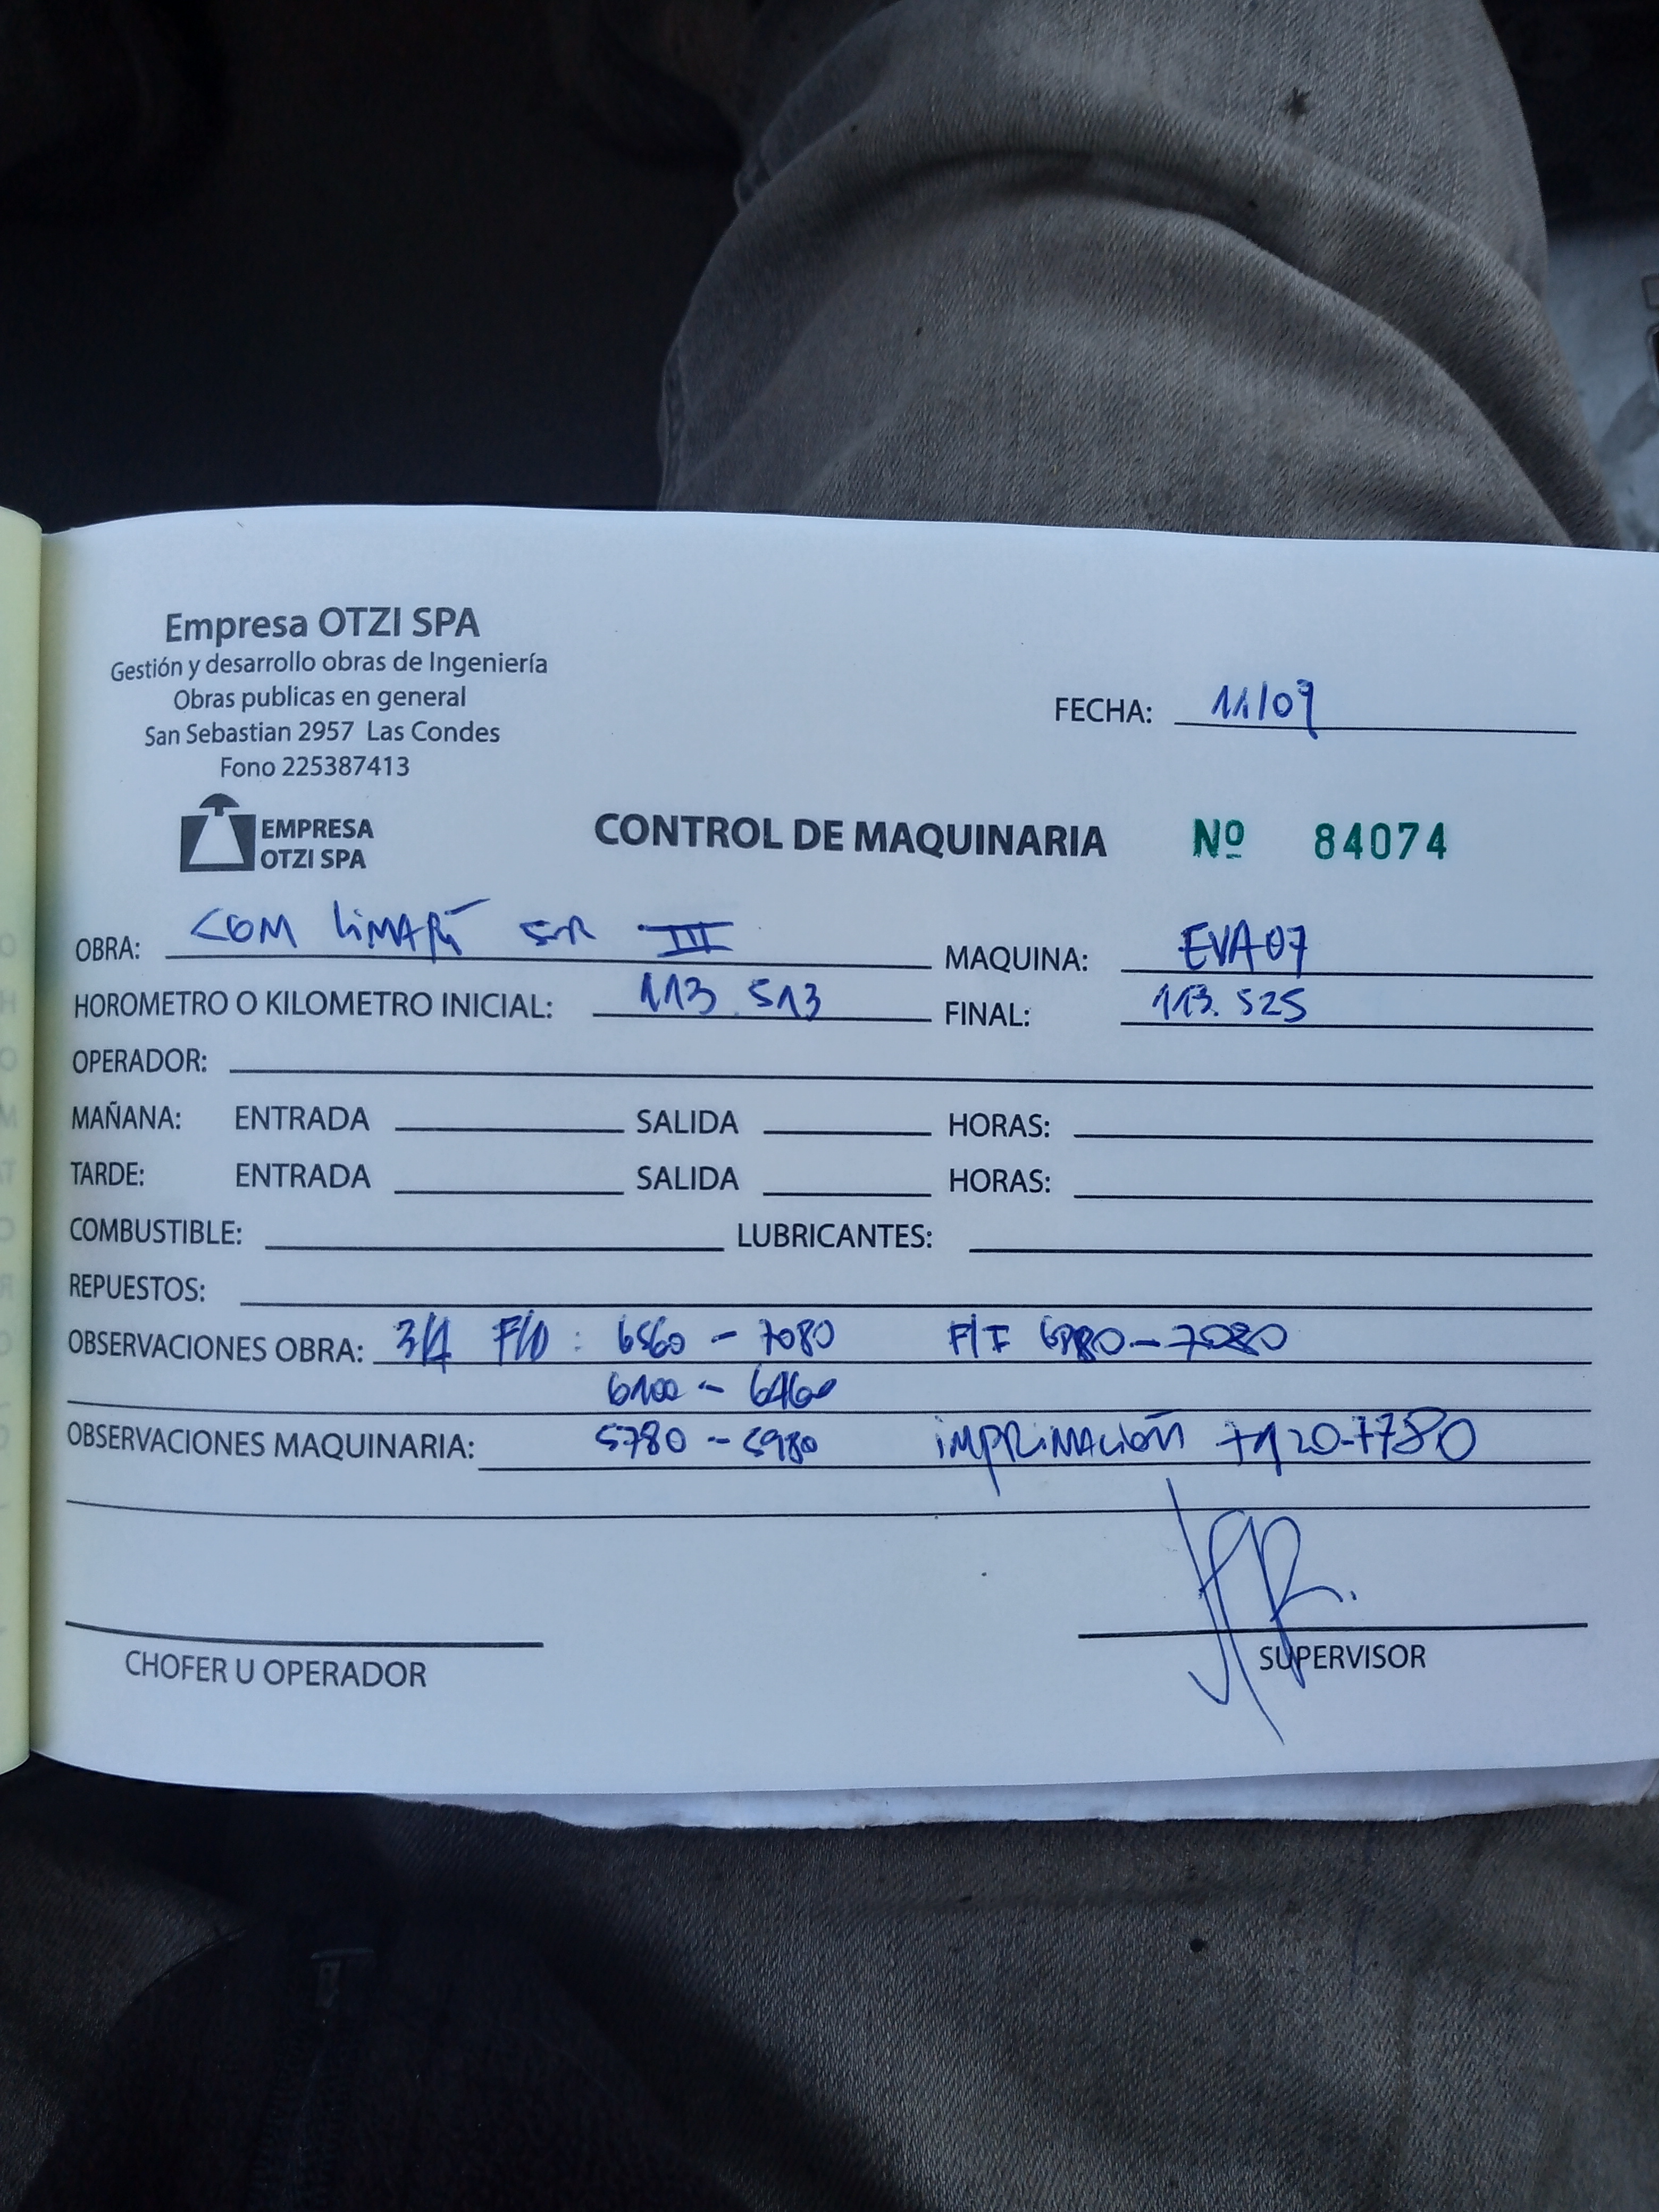 Empresa OTZI SPA
Gestión y desarrollo obras de Ingeniería
Obras publicas en general
San Sebastian 2957 Las Condes
Fono 225387413
FECHA: 11/09
EMPRESA
OTZI SPA
CONTROL DE MAQUINARIA Nº 84074
OBRA: COM LiMARí SUR III MAQUINA: EVA07
HOROMETRO O KILOMETRO INICIAL: 113.513 FINAL: 113.525
OPERADOR:
MAÑANA: ENTRADA SALIDA HORAS:
TARDE: ENTRADA SALIDA HORAS:
COMBUSTIBLE: LUBRICANTES:
REPUESTOS:
OBSERVACIONES OBRA: 6560 - 7080 F/I - 7080
6100 - 6460
OBSERVACIONES MAQUINARIA: 5780 - 5980 iMPRiMACióN
CHOFER U OPERADOR
SUPERVISOR